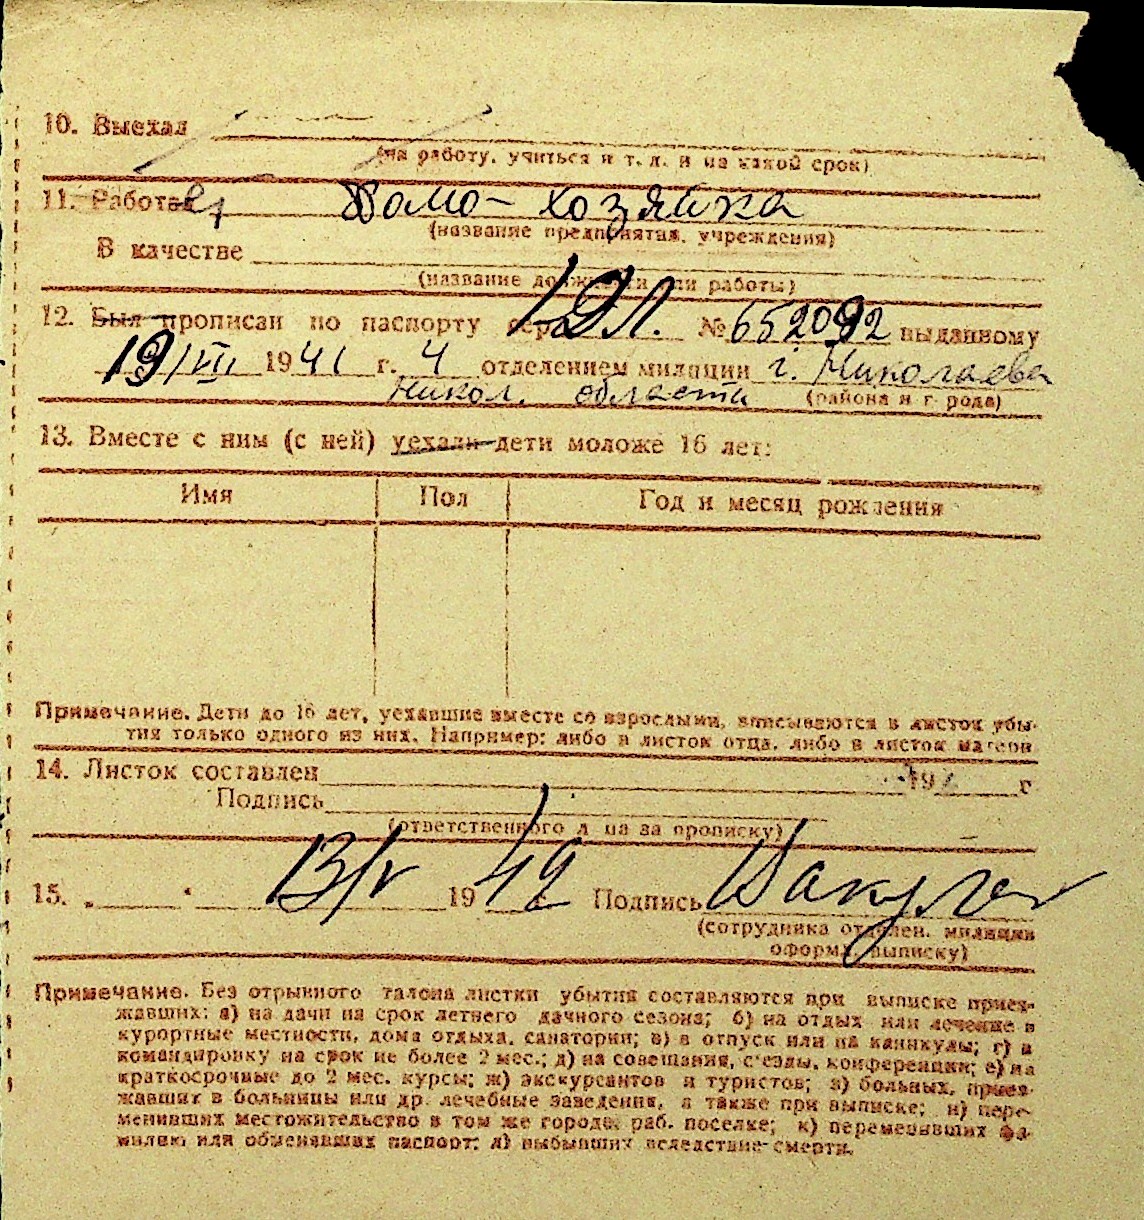 10. Выехал
(на работу, учиться и т. д. и на какой срок)
11. Работает Домо-хозяйка
(название предприятия, учреждения)
В качестве
(название должности или работы)
12. Был прописан по паспорту сер. № 652092 выданному
19/VII 1941 г. 4 отделением милиции г. Николаева
Никол. области (района и города)
13. Вместе с ним (с ней) уехали дети моложе 16 лет:
Имя Пол Год и месяц рождения
Примечание. Дети до 16 лет, уехавшие вместе со взрослыми, вписываются в листок убы-
тия только одного из них. Например: либо в листок отца, либо в листок матери
14. Листок составлен 19 г
Подпись
(ответственного л-ца за прописку)
15. 13/V 1942 Подпись
(сотрудника отделен. милиции
оформ. выписку)
Примечание. Без отрывного талона листки убытия составляются при выписке приез-
жавших: а) на дачи на срок летнего дачного сезона; б) на отдых или лечение в
курортные местности, дома отдыха, санатории; в) в отпуск или на каникулы; г) в
командировку на срок не более 2 мес.; д) на совещания, с'езды, конференции; е) на
краткосрочные до 2 мес. курсы; ж) экскурсантов и туристов; з) больных, приез-
жавших в больницы или др. лечебные заведения, а также при выписке; и) пере-
менивших местожительство в том же городе, раб. поселке; к) переменивших фа-
милию или обменявших паспорт; л) выбывших вследствие смерти.